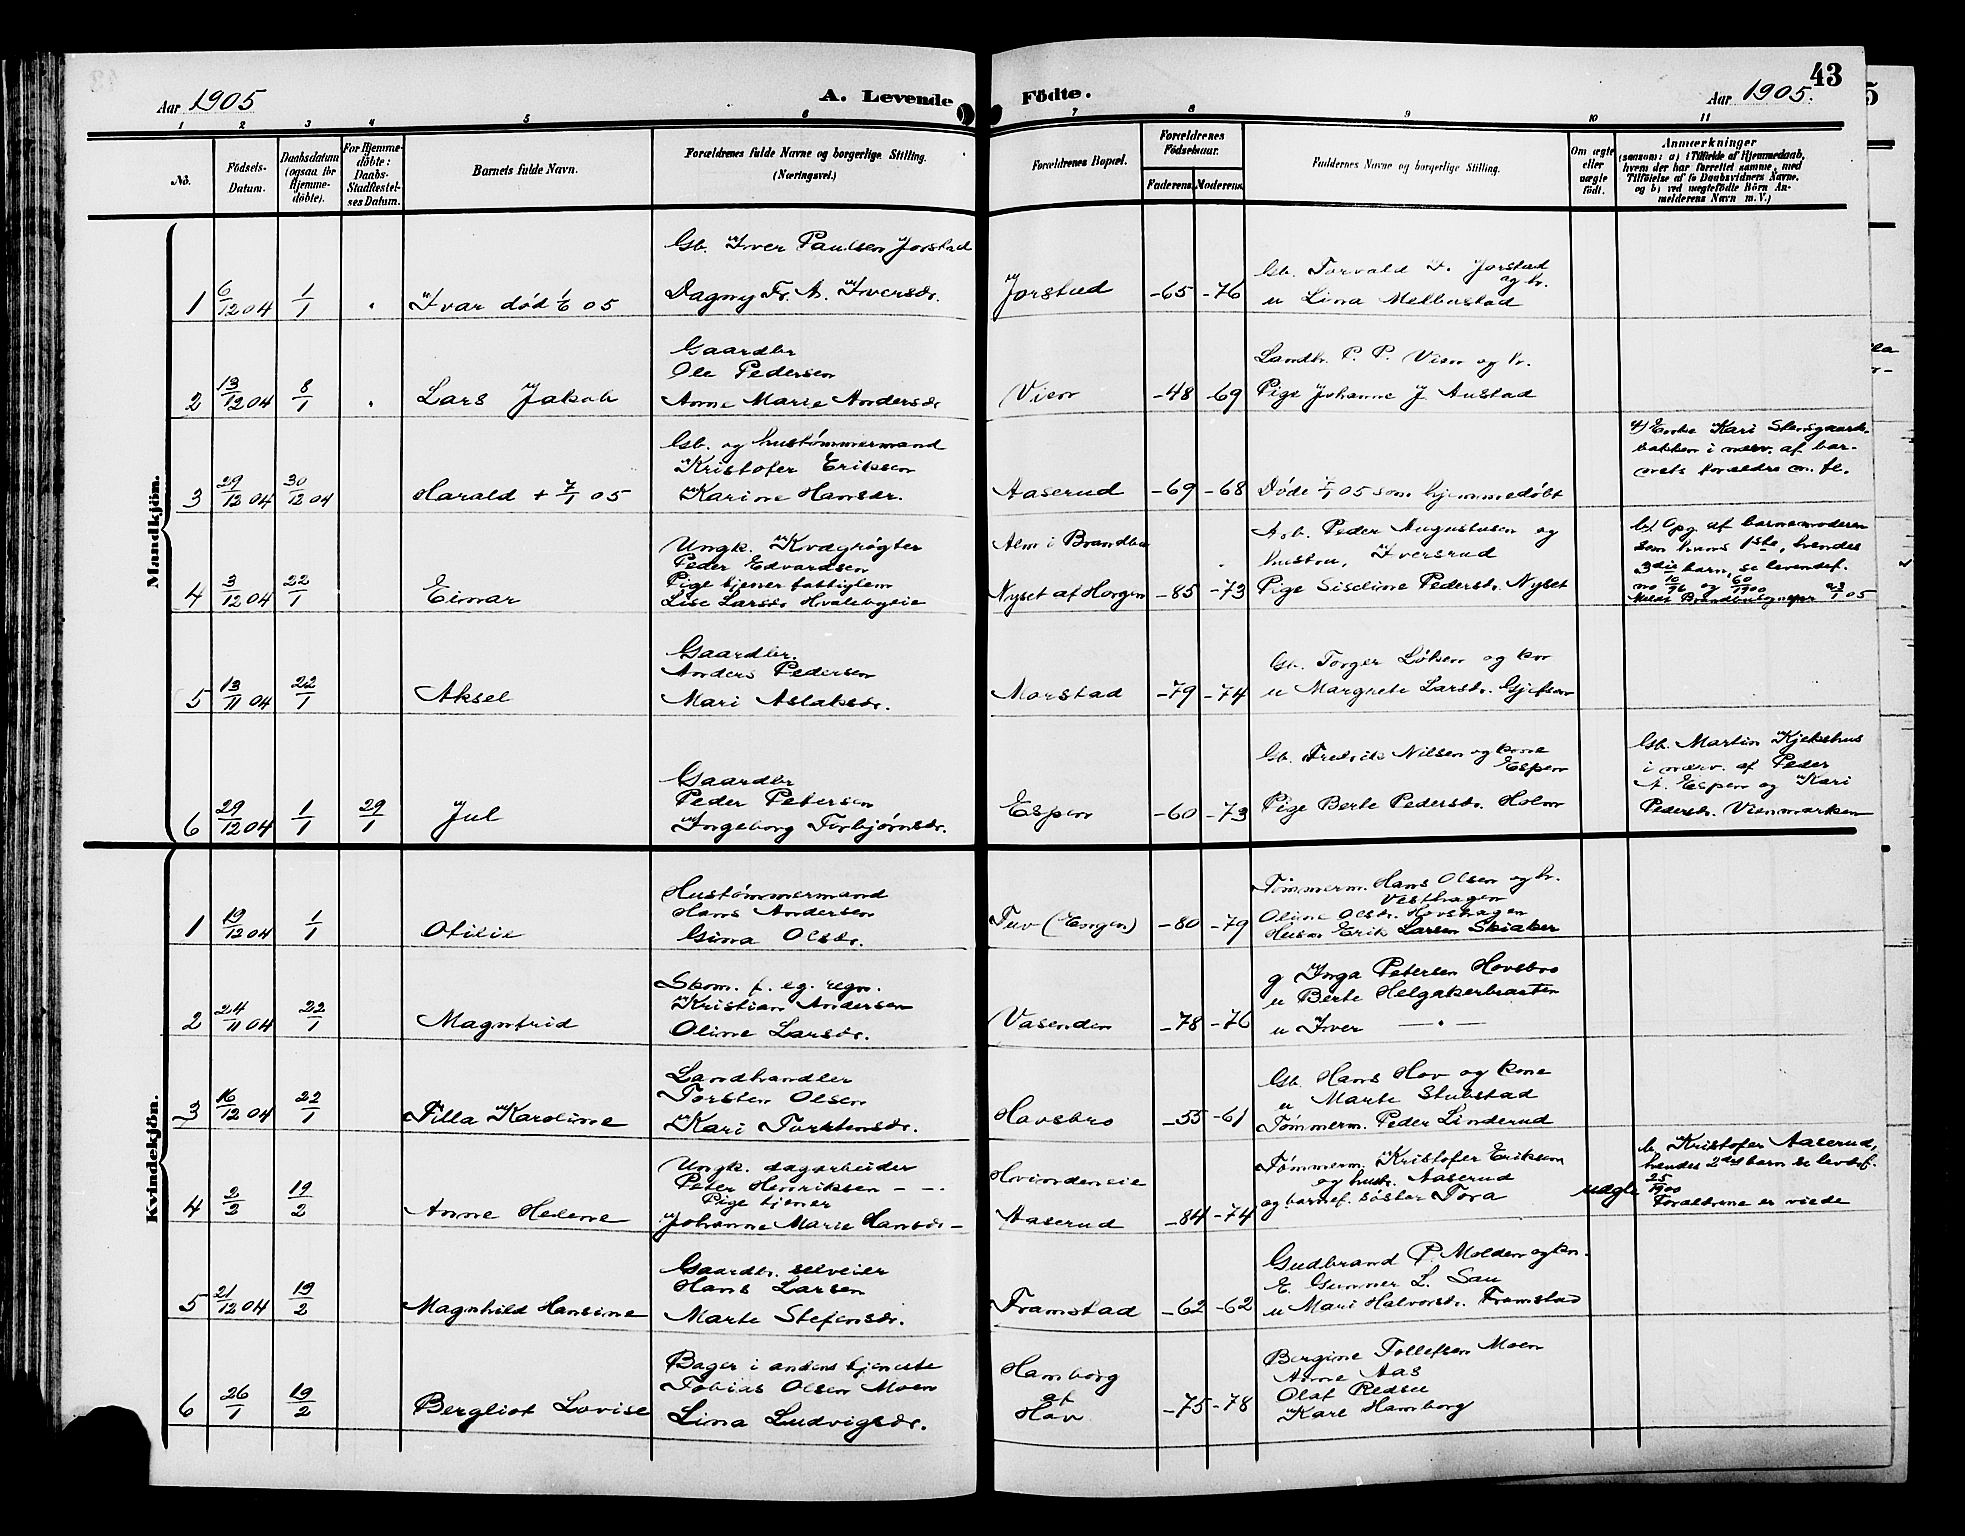 43
Aar 1905
A. Levende
Födte.
Aar 1905.
1 2 3 4 5 6 7 8 9 10 11
No.
Födsels-
Datum.
Daabsdatum
(ogsaa for
Hjemme-
döbte).
For Hjemme-
döbte:
Daabs-
Stadfæstel-
ses Datum.
Barnets fulde Navn.
Forældrenes fulde Navne og borgerlige Stilling.
(Næringsvei.)
Forældrenes Bopæl.
Forældrenes
Födselsaar.
Faderens. Moderens.
Faddernes Navne og borgerlige Stilling.
Om ægte
eller
uægte
födt.
Anmærkninger
(saasom: a) i Tilfælde af Hjemmedaab,
hvem der har forrettet samme, med
Tilföielse af to Daabsvidners Navne,
og b) ved uægtefödte Börn An-
melderens Navn m. V.)
Mandkjön.
Gb. Iver Paulsen Jorstad
Gb. Torvald I. Jorstad
og k.
1 6/12 04 1/1 Ivar død 1/6 05 Dagny Fr. A. Iversdr. Jorstad -65 -76 u Lina Melbustad
Gaardbr
Ole Pedersen
Landh. P. P. Vien og k.
2 13/12 04 8/1 Lars Jakob Anne Marie Andersdr Vien -48 -69 Pige Johanne J. Austad
Gb. og hustømmermand
Kristofer Eriksen
a) Enke Kari Stensgaard-
bakken i nærv. af bar-
nets forældre m. fl.
3 29/12 04 30/12 04 Harald + 7/1 05 Karine Hansdr. Aaserud -69 -68 Døde 7/1 05 som hjemmedøbt
Ungk. Kvægrøgter
Peder Edvardsen
Pige tjener fattiglem
Lise Larsdr Hvalebyeie
Alm i Brandbu
Arb. Peder Augustusen og
hustru, Iversrud
b) Opg af barnemoderen
som hans 1ste, hendes
3die barn, se levendef.
no 10/96 og 60/1900
Meldt Brandbu sognepr 23/1 05
4 3/12 04 22/1 Einar Nyset af Horgen -85 -73 Pige Siseline Pedersdr. Nyset
Gaardbr.
Anders Pedersen
Gb. Torger Løken og kone
5 13/11 04 22/1 Aksel Mari Aslaksdr. Morstad -79 -74 u Margrete Larsdr. Gjefsen
Gaardbr
Peder Petersen
Gb. Fredrik Nilsen og kone
Espen
Gb. Martin Kjekshus
i nærv. af Peder
A. Espen og Kari
Pedersdr. Vienmarken
6 29/12 04 1/1 29/1 Jul Ingeborg Torbjørnsdr. Espen -60 -73 Pige Berte Pedersdr. Holm
Kvindekjön.
Hustømmermand
Hans Andersen
Tømmerm. Hans Olsen og k.
Vesthagen
Oline Olsdr. Hovshagen
Husm Erik Larsen Skiaker
1 19/12 04 1/1 Otilie Gina Olsdr. Tuv (Engen) -80 -79
Skom. f. eg. regn.
Kristian Andersen
g Inga Petersen Hovsbro
u Berte Helgakerbraaten
2 24/11 04 22/1 Magnfrid Oline Larsdr. Vasenden -78 -76 u Iver — " —
Landhandler
Torsten Olsen
Gb. Hans Hov og kone
u Marte Stubstad
3 16/12 04 22/1 Tilla Karoline Kari Torstensdr. Hovsbro -55 -61 Tømmerm. Peder Linderud
Ungk. dagarbeider
Peter Henriksen
Pige tjener
Johanne Marie Hansdr
Hovindeneie
Aaserud
Tømmerm. Kristofer Eriksen
og hustr. Aaserud
og barnef. søster Tora
b. Kristofer Aaserud,
hendes 2det barn se levtef.
25/1900
Forældrene er viede
4 2/2 19/2 Anne Helene -84 -74 uægte
Gaardbr. selveier
Hans Larsen
Gudbrand P. Molden og kn.
E. Gunner L. Sau
5 21/12 04 19/2 Magnhild Hansine Marte Stefensdr. Framstad -62 -62 u Mari Halvorsdr. Framstad
Bager i andens tjeneste
Tobias Olsen Moen
Hamborg
af
Hov
Bergine Tollefsen Moen
Anne Aas
Olaf Rudsee
Karl Hamborg
6 26/1 19/2 Bergliot Lovise Lina Ludvigsdr. -75 -78